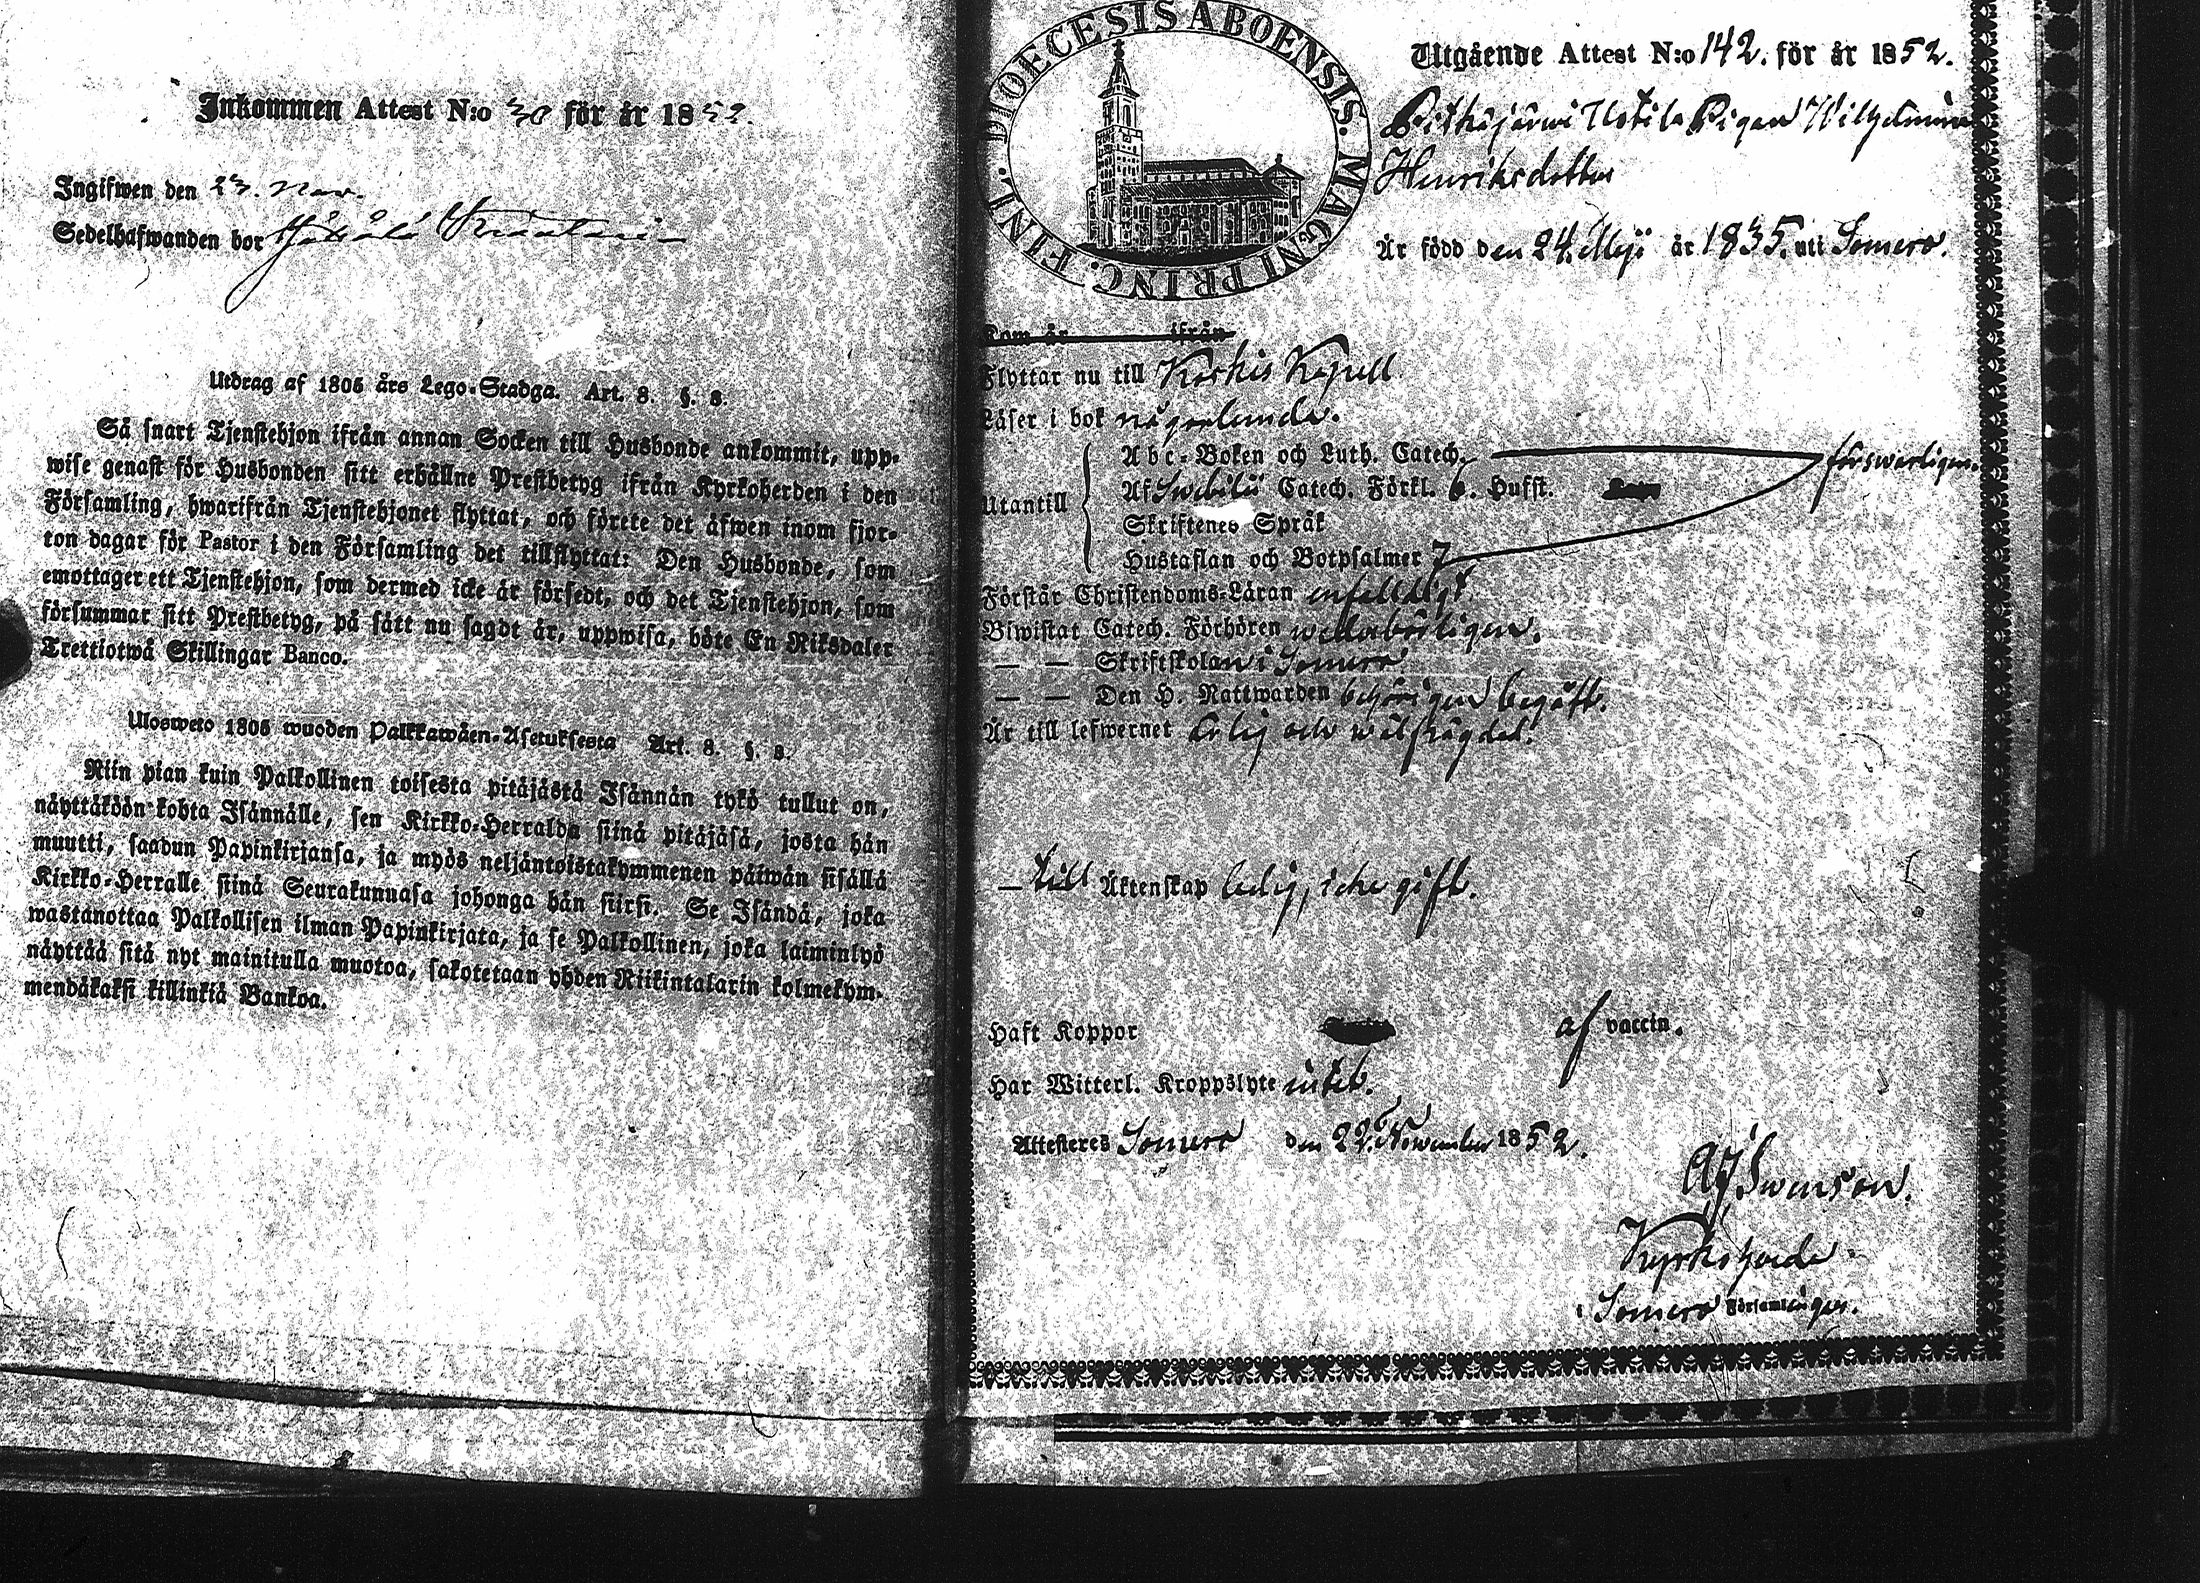 Inkommen Attest N:o 30 för år 1852.
Ingifwen den 23. Nov.
Sedelhafwanden bor
Utdrag af 1805 års Lego-Stadga. Art. 8. §. 8.
Så snart Tjenstehjon ifrån annan Socken till Husbonde ankommit, upp-
wise genast för Husbonden sitt erhållne Prestbetyg ifrån Kyrkoherden i den
Församling, hwarifrån Tjenstehjonet flyttat, och förete det äfwen inom fjor-
ton dagar för Pastor i den Församling det tillflyttat: Den Husbonde, som
emottager ett Tjenstehjon, som dermed icke är försedt, och det Tjenstehjon, som
försummar sitt Prestbetyg, på sätt nu sagdt är, uppwisa, böte En Riksdaler
Trettiotwå Skillingar Banco.
Ulosweto 1805 wuoden Palkkawäen-Asetuksesta Art. 8. §. 8.
Niin pian kuin Palkollinen toisesta pitäjästä Isännän tykö tullut on,
näyttäköön kohta Isännälle, sen Kirkko-Herralda siinä pitäjäsä, josta hän
muutti, saadun Papinkirjansa, ja myös neljäntoistakymmenen päiwän sisällä
Kirkko-Herralle siinä Seurakunnasa johonga hän siirsi. Se Isändä, joka
wastanottaa Palkollisen ilman Papinkirjata, ja se Palkollinen, joka laiminlyö
näyttää sitä nyt mainitulla muotoa, sakotetaan yhden Riikintalarin kolmekym-
mendäkaksi killinkiä Bankoa.
DIOECESIS ABOENSIS. MAGNI PRINC. FINL.
Utgående Attest N:o 142. för år 1852.
Pitkäjärwi Uotila Pigan Wilhelmina
Henriksdotter
Är född den 24. Maji år 1835. uti Somero.
Kom år ifrån
Flyttar nu till Koskis Kapell.
Läser i bok någorlunda.
Utantill
Abc-Boken och Luth. Catech. förswarligen.
Af Swebilii Catech. Förkl. 6. Hufst.
Skriftenes Språk
Hustaflan och Botpsalmer 7
Förstår Christendoms-Läran enfaldigt.
Biwistat Catech. Förhören wederbörligen.
— — Skriftskolan i Somero
— — Den H. Nattwarden behörigen begått.
Är till lefwernet ärlig och wälfrägdad.
— till Äktenskap ledig, icke gift.
Haft Koppor af vaccin.
Har Witterl. Kroppslyte intet.
Attesteres Somero den 22. November 1852.
A J Swenson.
Kyrkoherde
i Somero Församlingen.